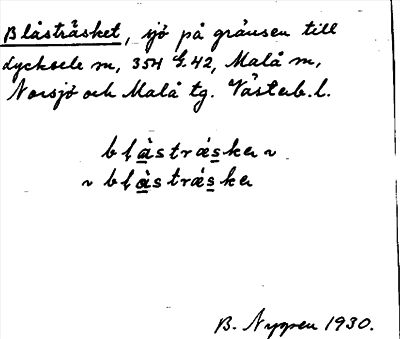 Blåsträsket, sjö på gränsen till
Lycksele sn, 35H G.42, Malå sn,
Norsjö och Malå tg. Västerb. l.
blàstrǽsker ~
~ blàstrǽsker
B. Nygren 1930.